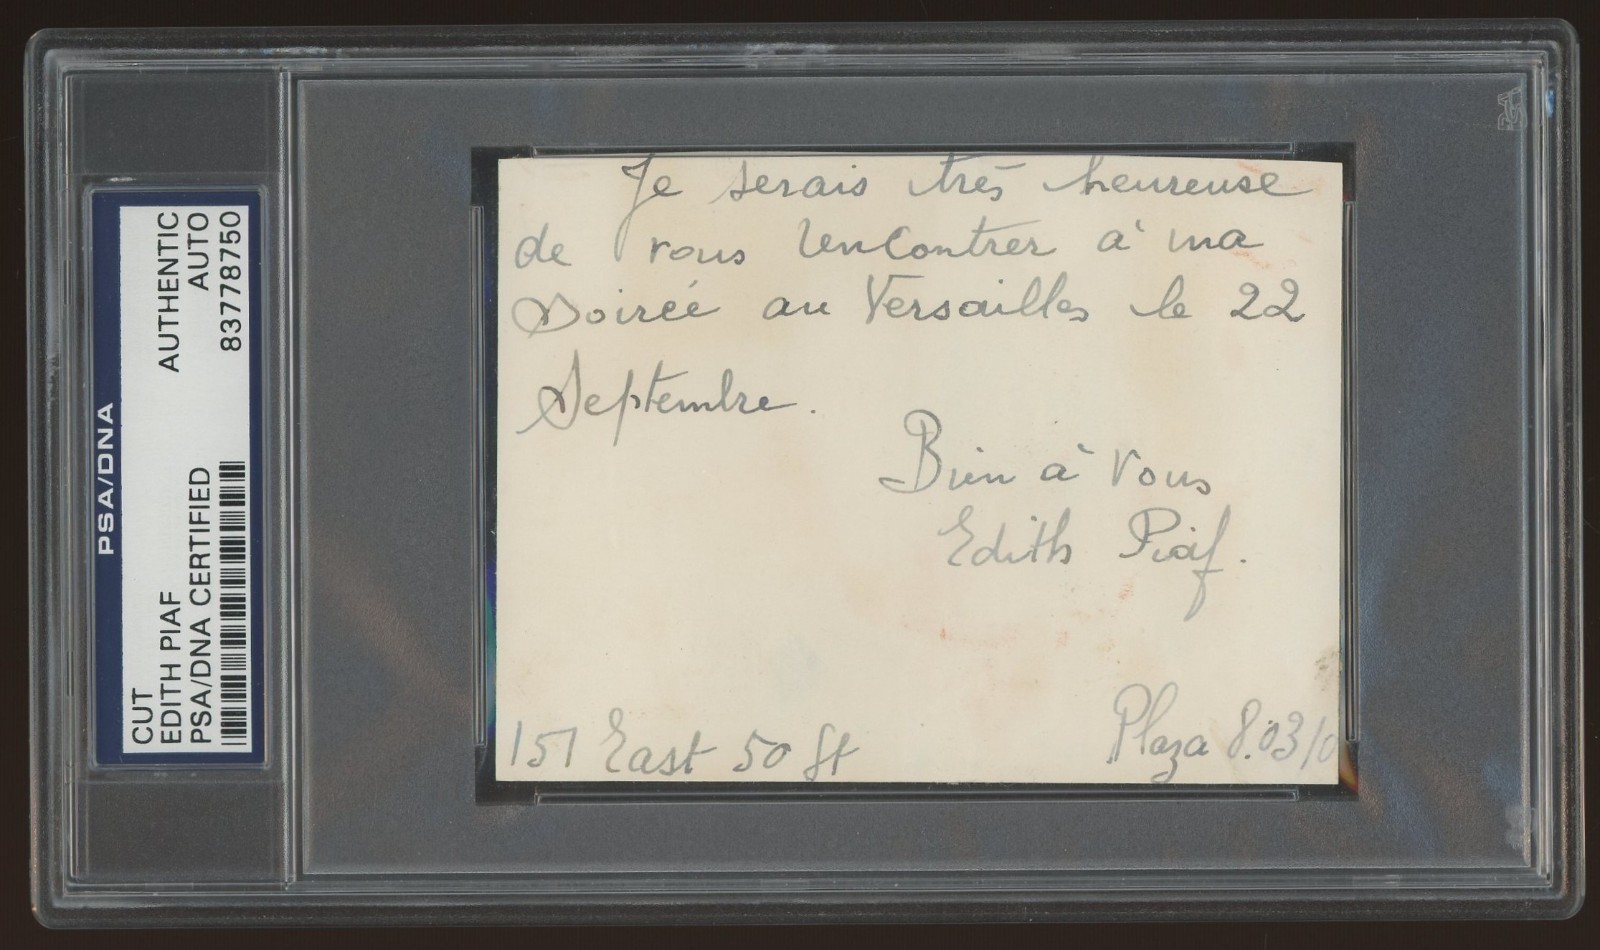 PSA/DNA
CUT AUTHENTIC
EDITH PIAF AUTO
PSA/DNA CERTIFIED 83778750
Je serais très heureuse
de vous rencontrer à ma
soirée au Versailles le 22
Septembre.
Bien à vous
Edith Piaf.
151 East 50 St
Plaza 8.0310